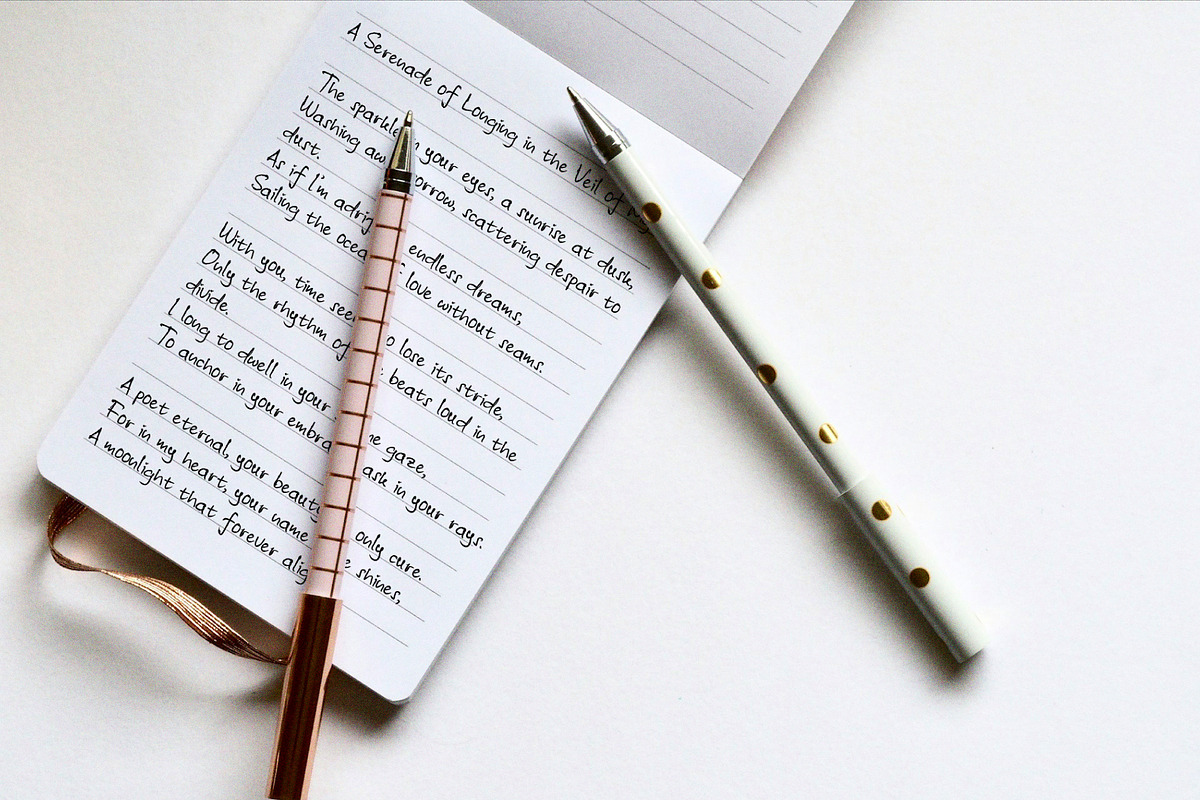 A Serenade of Longing in the Veil of
The sparkle your eyes, a sunrise at dusk,
Washing scattering despair to
dust.
As if I'm endless dreams,
Sailing the love without seams.
With you, time lose its stride,
Only the rhythm of beats loud in the
divide.
I long to dwell in your gaze,
To anchor in your in your rays.
A poet eternal, your only cure.
For in my heart, your name shines,
A moonlight that forever